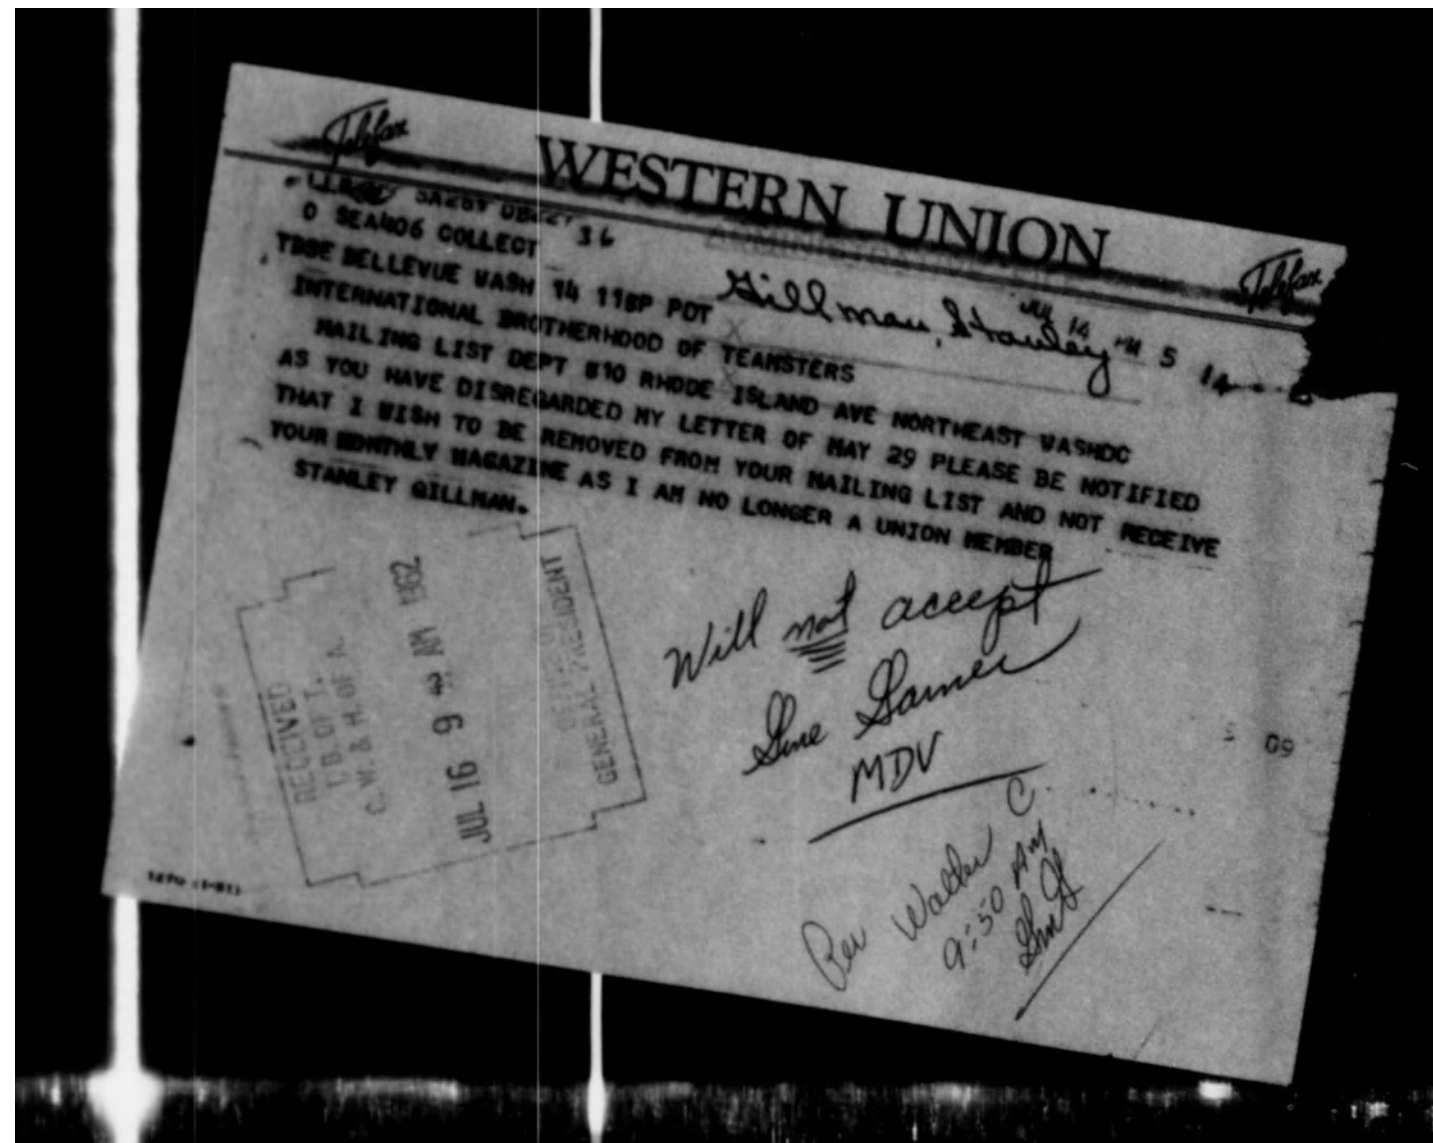 Telefax
WESTERN UNION
Telefax
36
O SEA406 COLLECT
TDSE BELLEVUE WASH 14 118P PDT
Gillman, Stanley
JUL 14 PM 5 14
INTERNATIONAL BROTHERHOOD OF TEAMSTERS
MAILING LIST DEPT 810 RHODE ISLAND AVE NORTHEAST WASHDC
AS YOU HAVE DISREGARDED MY LETTER OF MAY 29 PLEASE BE NOTIFIED
THAT I WISH TO BE REMOVED FROM YOUR MAILING LIST AND NOT RECEIVE
YOUR MONTHLY MAGAZINE AS I AM NO LONGER A UNION MEMBER
STANLEY GILLMAN.
Will not accept
MDV
C
Per Walker
9:50 AM
RECEIVED
I.B. OF T.
C. W. & H. OF A.
JUL 16 9 AM 1962
GENERAL PRESIDENT
09